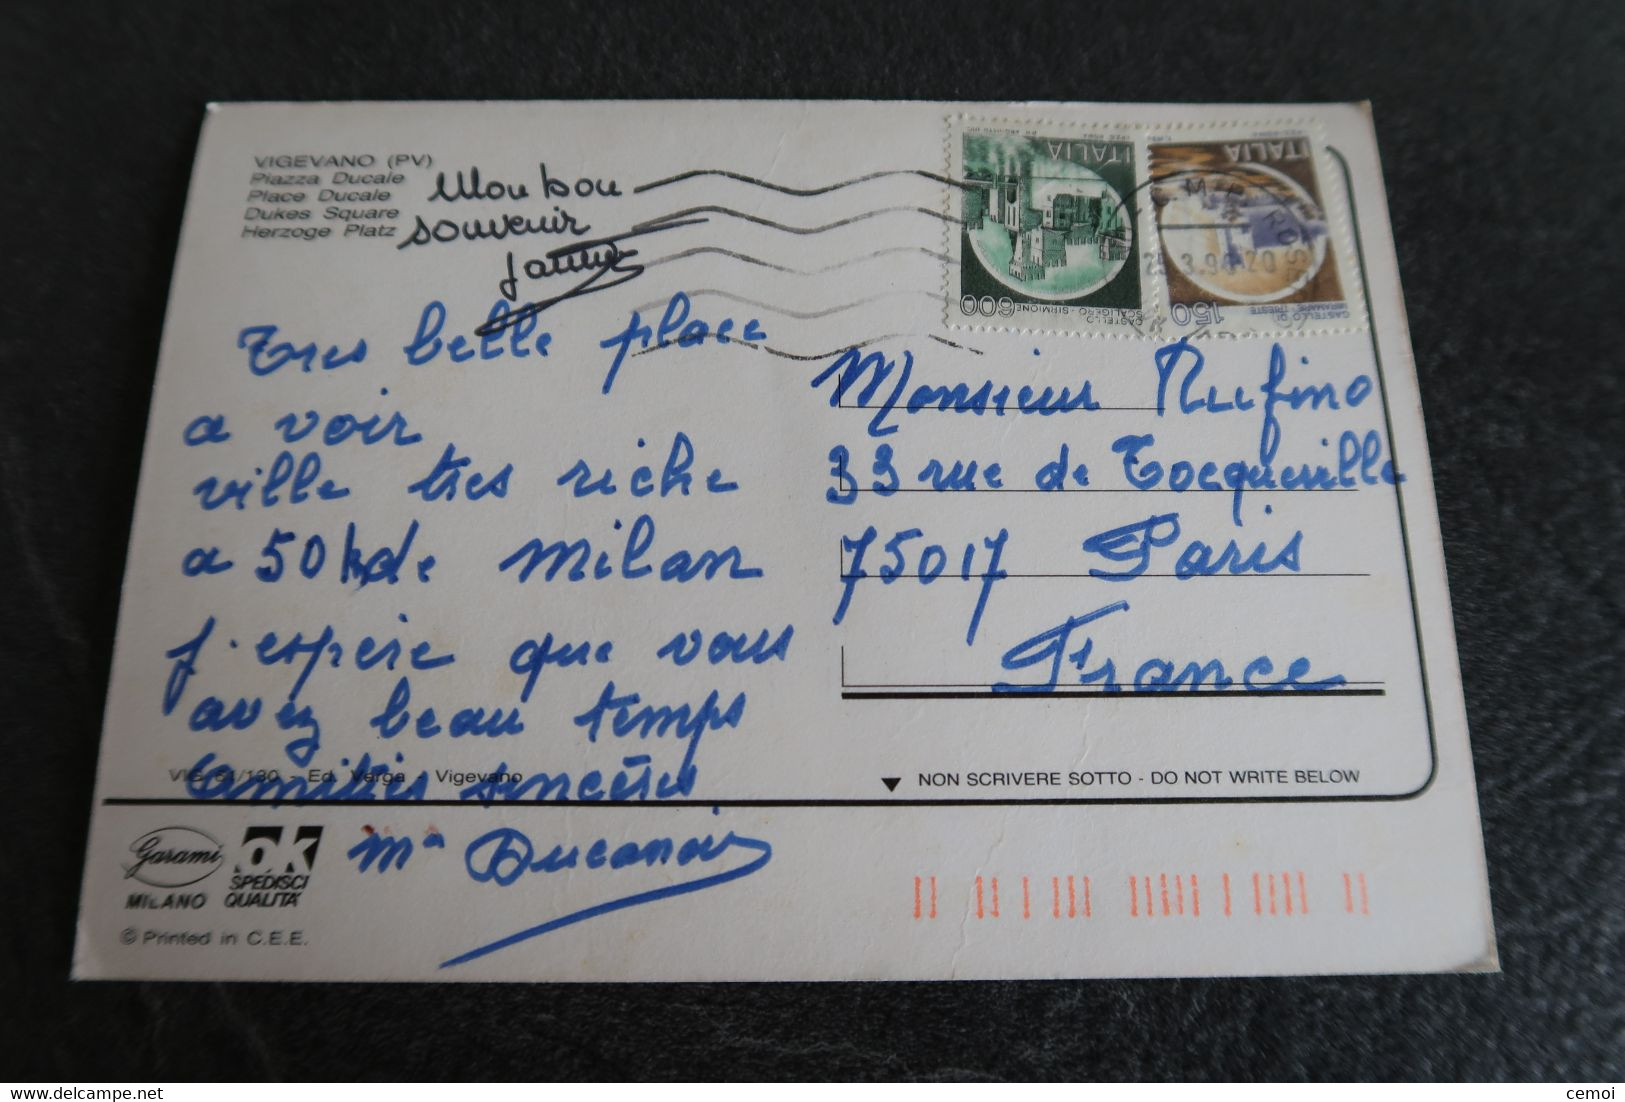 VIGEVANO (PV)
Piazza Ducale
Place Ducale
Dukes Square
Herzoge Platz
Mon bon
souvenir
Tres belle place
a voir
ville tres riche
a 50 k de Milan
j'espère que vous
avez beau temps
Amitiés sincères
Ma
VIG 51/130 - Ed. Verga - Vigevano
Garami
MILANO
ok
SPEDISCI
QUALITA'
© Printed in C.E.E.
ITALIA
600
CASTELLO
SCALIGERO - SIRMIONE
ITALIA
150
CASTELLO DI
MIRAMARE - TRIESTE
Monsieur Rufino
33 rue de Tocqueville
75017 Paris
France
NON SCRIVERE SOTTO - DO NOT WRITE BELOW
cemoi